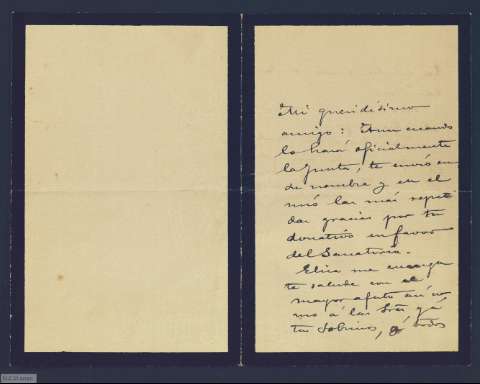 Mi queridísimo
amigo: Aun cuando
lo hará oficialmente
la Junta, te envío en
su nombre y en el
mío las más repeti
das gracias por tu
donativo en favor
del Sanatorio.
Elisa me encarga
te salude con el
mayor afecto así co
mo á las Sras y á
tus sobrinos, y todos